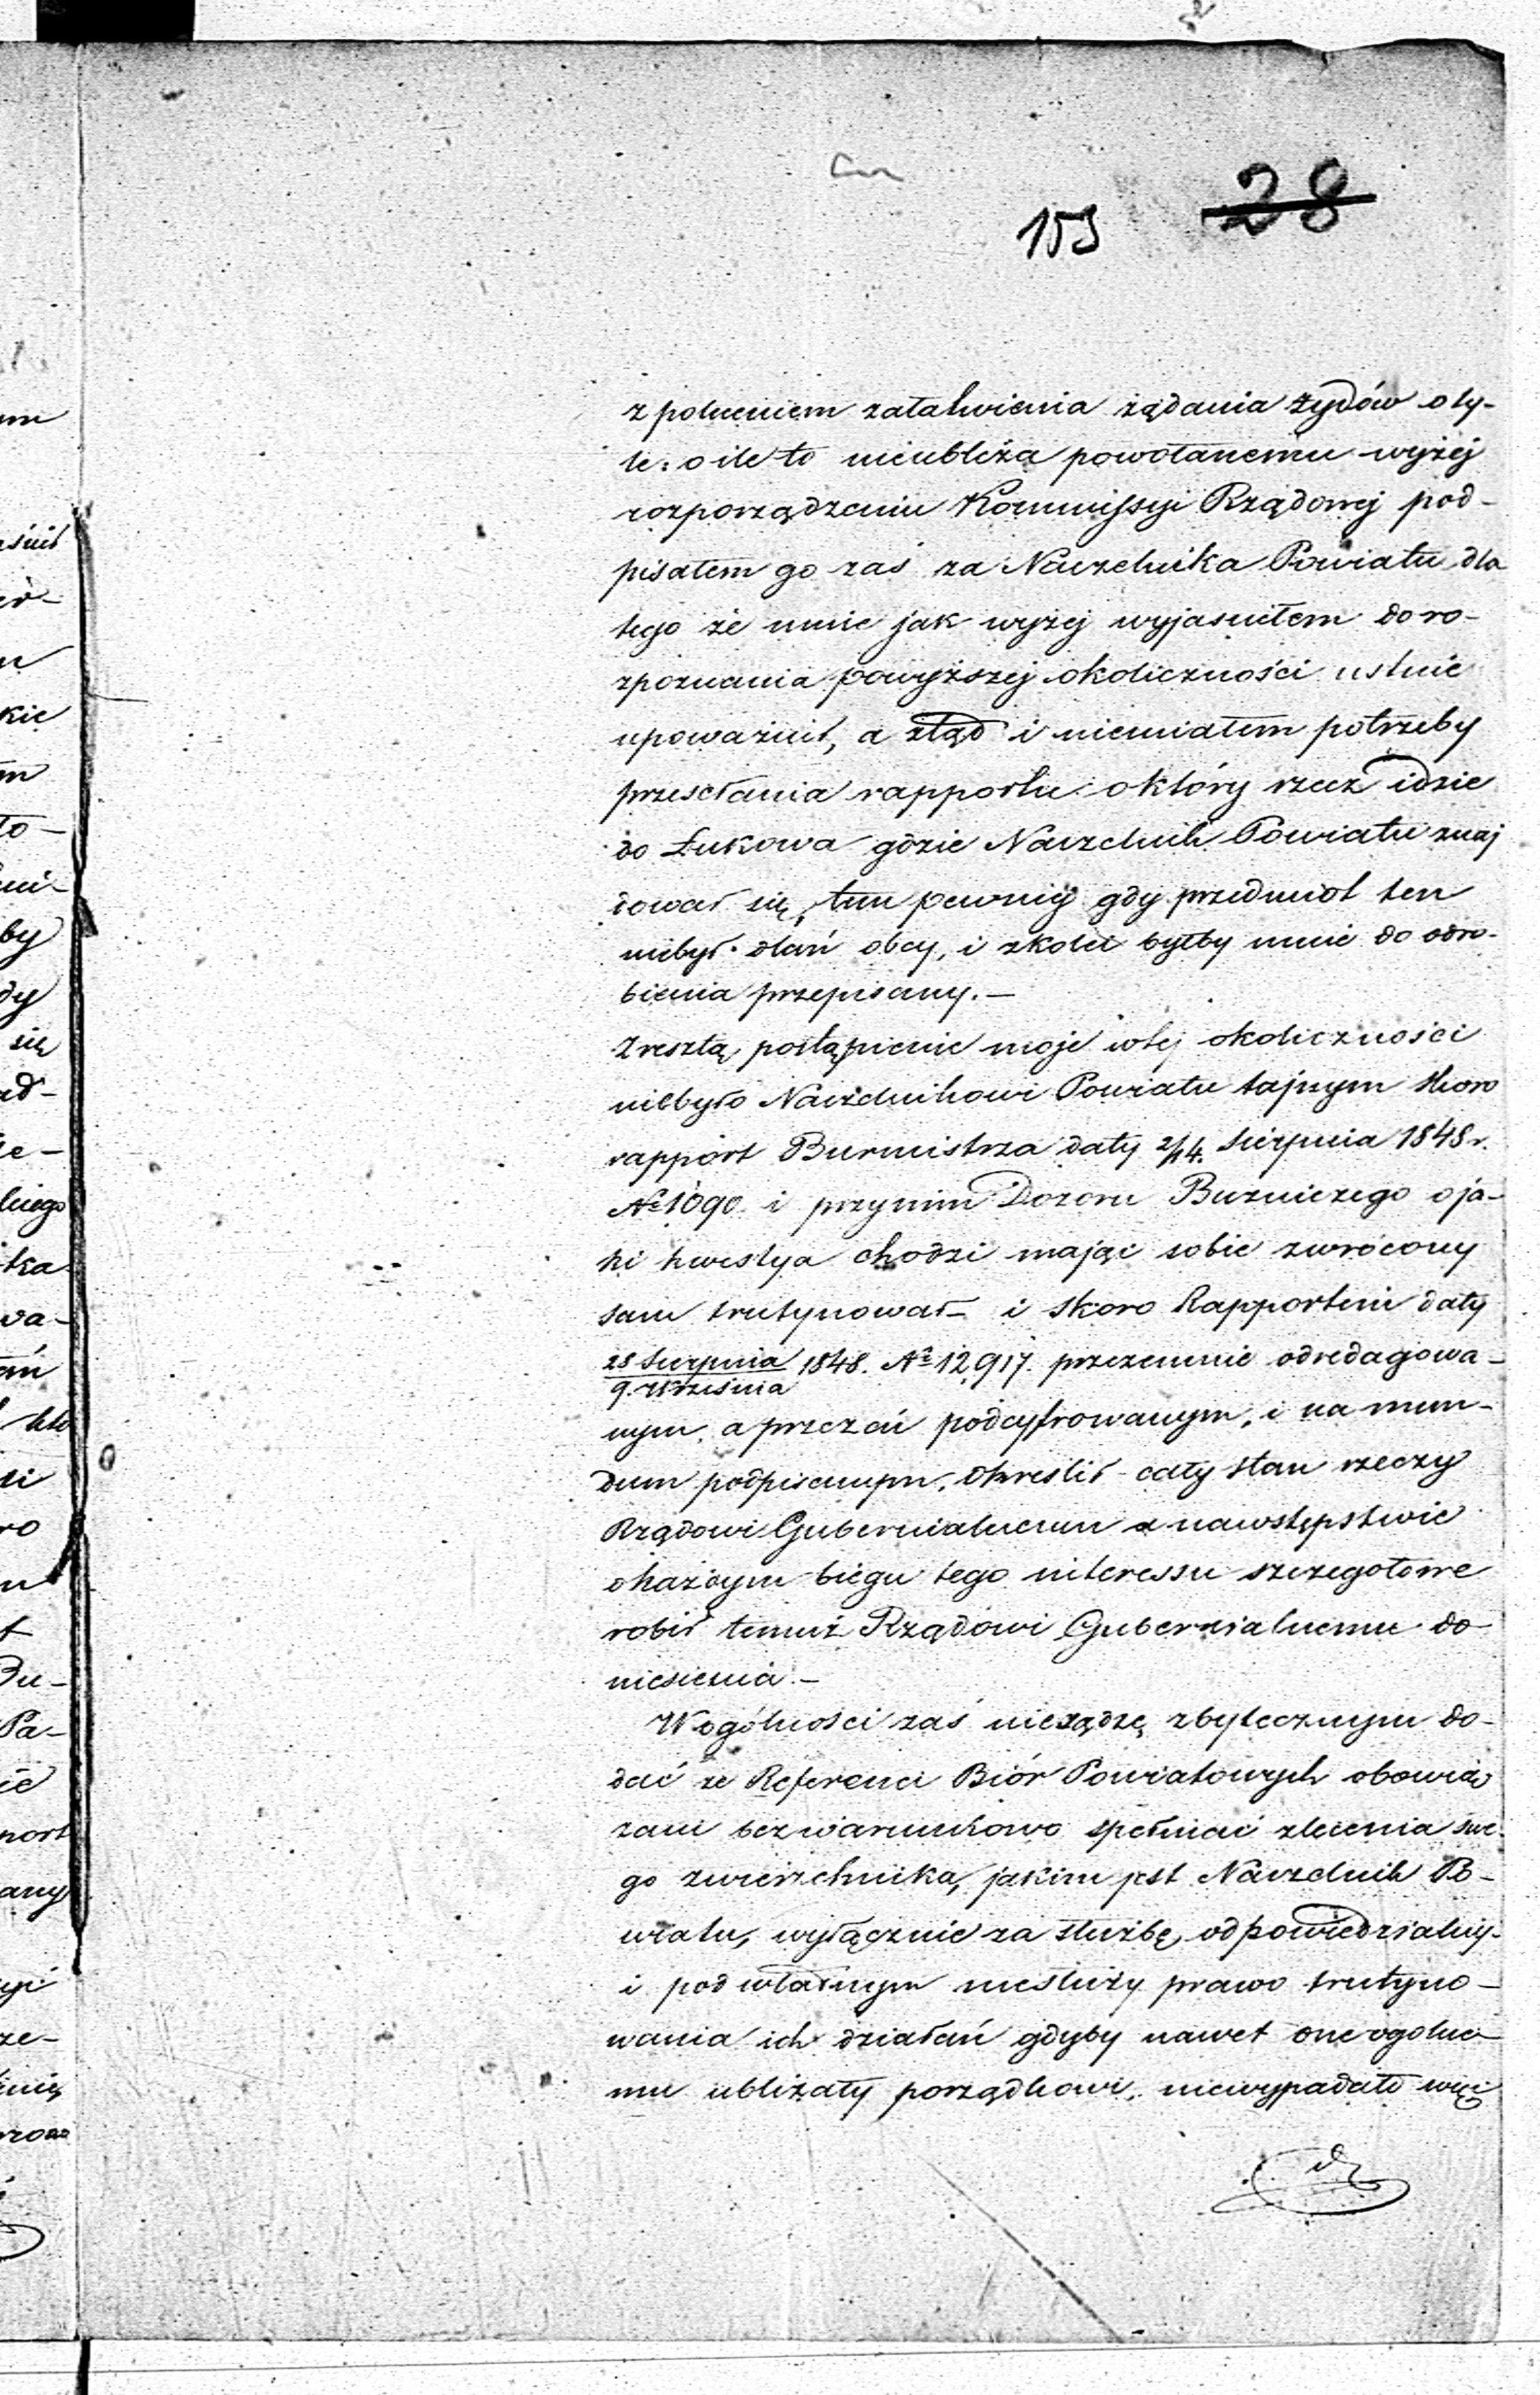 153 28
z poleceniem załatwienia żądania żydów o ty-
le: o ile to nieubliża powołanemu wyżej
rozporządzeniu Kommissyi Rządowej pod-
pisałem go zaś za Naczelnika Powiatu dla
tego że mnie jak wyżej wyjasniłem do ro-
zpoznania powyższej okoliczności ustnie
upoważnił, a ztąd i niemiałem potrzeby
przesełania rapportu o który rzecz idzie
do Łukowa gdzie Naczelnik Powiatu znaj
dował się, tem pewniej gdy przedmiot ten
niebył dlań obcy, i zkolei byłby mnie do odro-
bienia przepisany.—
Zresztą postąpienie moje w tej okoliczności
niebyło Naczelnikowi Powiatu tajnym skoro
rapport Burmistrza daty 2/14. Sierpnia 1848 r.
№ 1090. i przy nim Dozoru Bużniczego o ja-
ki kwestya chodzi mając sobie zwrócony
sam trutynował – i skoro Rapportem daty
28 Sierpnia/9. Września 1848. № 12,917. przezemnie odredagowa-
nym, a przezeń podcyfrowanym, i na mun-
dum podpisanym, określił cały stan rzeczy
Rządowi Gubernialnemu a nawstępstwie
okażdym biegu tego interessu szczegółowe
robił temuż Rządowi Gubernialnemu do-
niesienia.—
W ogólności zaś niesądzę zbytecznym do-
dać że Referenci Biór Powiatowych obowią
zani bezwarunkowo spełniać zlecenia swe-
go zwierzchnika, jakim jest Naczelnik Po-
wiatu, wyłącznie za służbę odpowiedzialny
i podwładnym niesłuży prawo trutyno-
wania ich działań gdyby nawet one ogolne-
mu ubliżały porządkowi, niewypadało więc